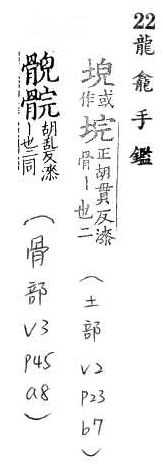 22 龍龕手鑑
或作 垸 正胡貫反漆骨丨也二
（土部 V2 P23 b7）
胡亂反漆骨丨也二同
（骨部 V3 P45 a8）